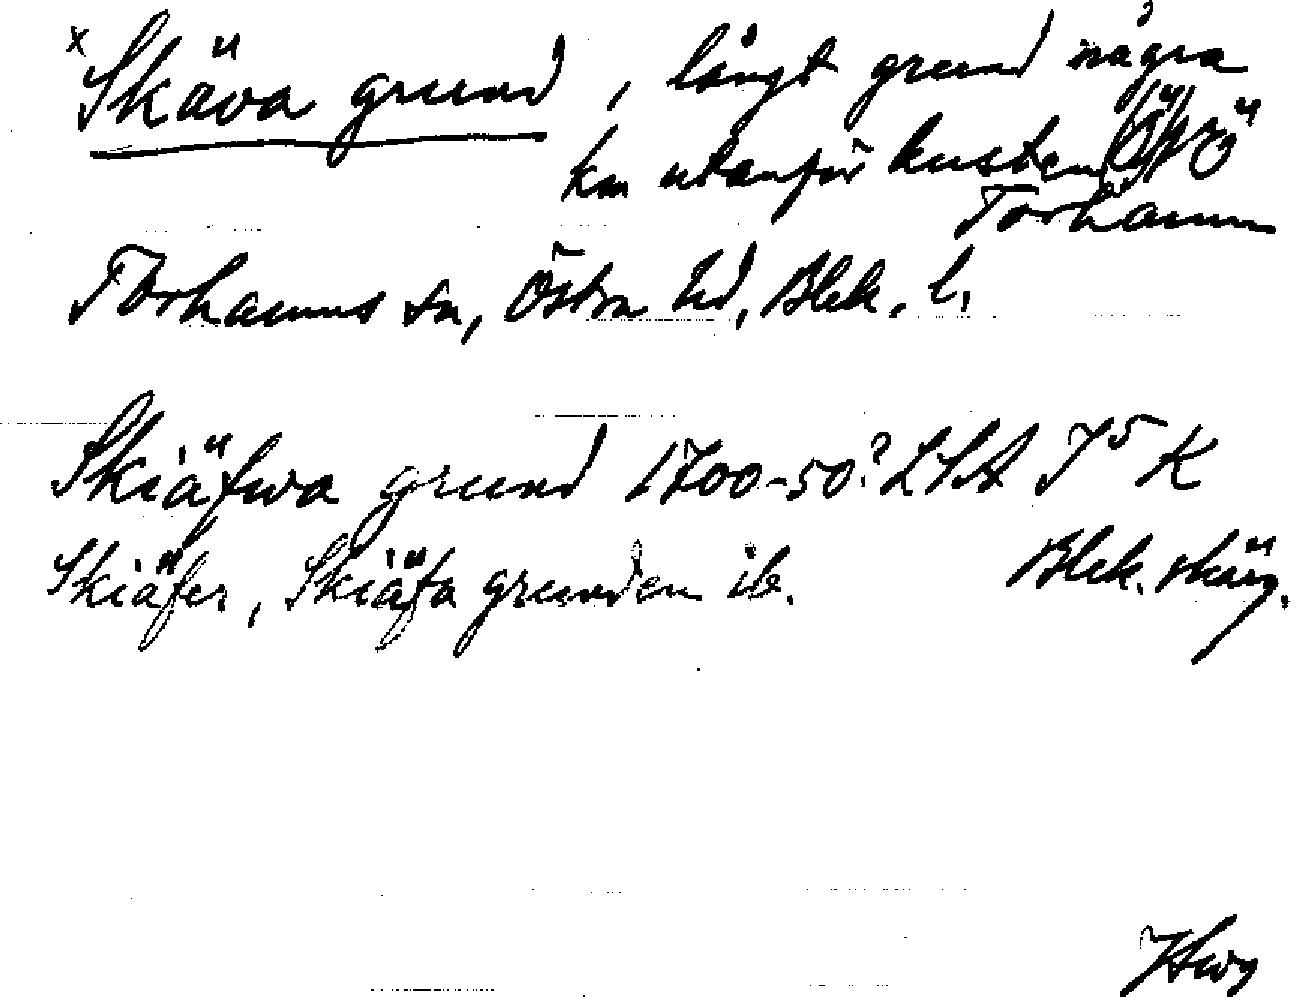 x Skäva grund, långt grund några
km utanför kusten Ö
Torhamn
Torhamns sn, Östra hd, Blek. l.
Skiäfwa grund 1700-50? LSA I5 K
Skiäfer, Skiäfa grunden ib. Blek. skärg.